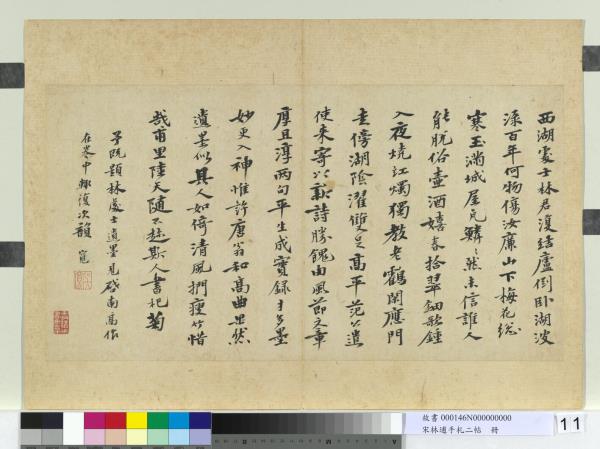 西湖處士林君復結廬倒卧湖波
淥百年何物傷汝廉山下梅花總
寒玉滿城屋瓦鱗〻然未信誰人
能脫俗壺酒嬉春拾翠鈿歌鐘
入夜燒紅燭獨教老鶴閑應門
走傍湖陰濯雙足高平范公遣
使来寄以新詩勝餽肉風節文章
厚且淳兩句平生成實錄手多墨
妙更入神惟許唐翁和高曲果然
遺墨似其人如倚清風捫瘦竹惜
哉甫里陸天隨不趂斯人書杞菊
予既題林處士遺墨見啟南高作
在卷中輒復次韻 寬
故書 000146N000000000
宋林逋手札二帖 冊
11